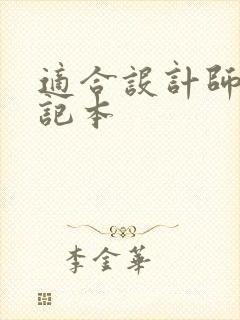 適合設計師
記本
李金華